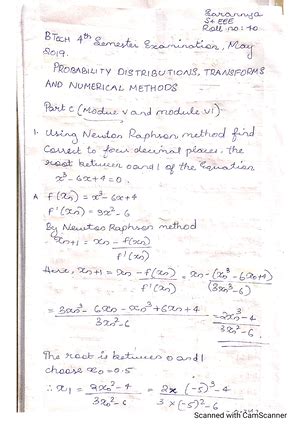 Sarannya
S4 EEE
Roll no: 40
BTech 4th Semester Examination, May
2019.
PROBABILITY DISTRIBUTIONS, TRANSFORMS
AND NUMERICAL METHODS
Part C (Module V and module VI)
1. Using Newton Raphson method find
correct to four decimal places, the
root between 0 and 1 of the equation
x³-6x+4=0.
A f(xn) = x³-6x+4
f'(xn) = 3x²-6
By Newton Raphson method
xn+1 = xn - f(xn)/f'(xn)
Here, xn+1 = xn - f(xn)/f'(xn) = xn - (xn³-6xn+4)/(3xn²-6)
= 3xn³-6xn-xn³+6xn+4/3xn²-6 = 2xn³-4/3xn²-6
The root is between 0 and 1
choose x0=0.5
∴ x1 = 2xn³-4/3xn²-6 = 2×(.5)³-4/3×(.5)²-6
Scanned with CamScanner